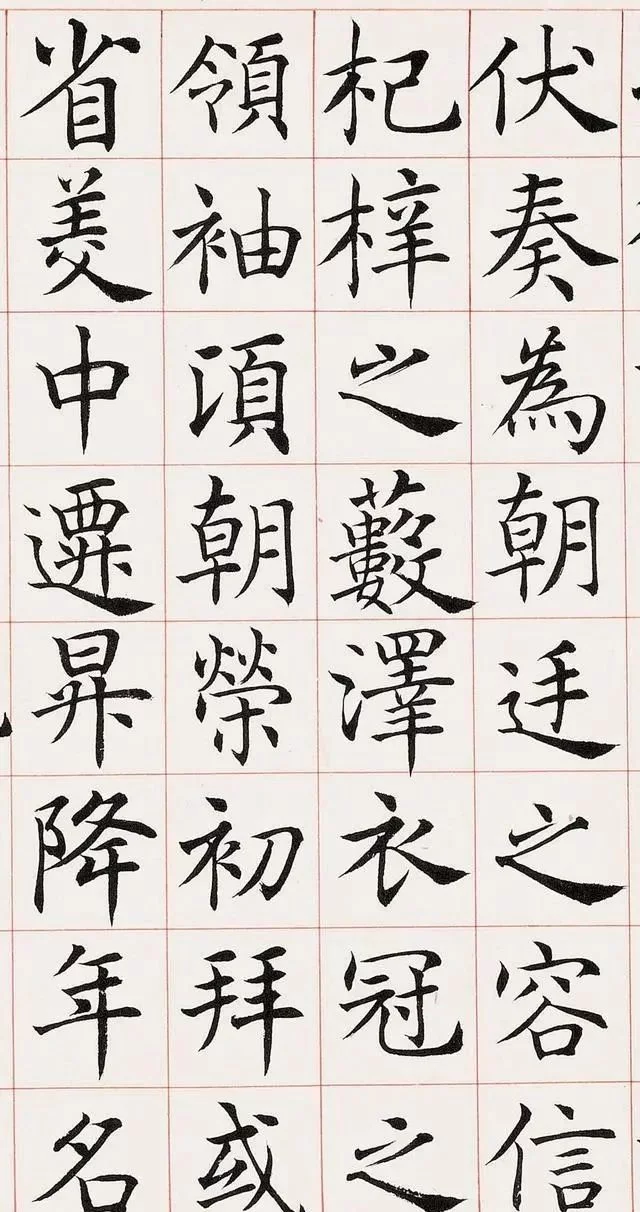 伏奏為朝廷之容信
杞梓之藪澤衣冠之
領袖須朝榮初拜或
省美中遷昇降年名